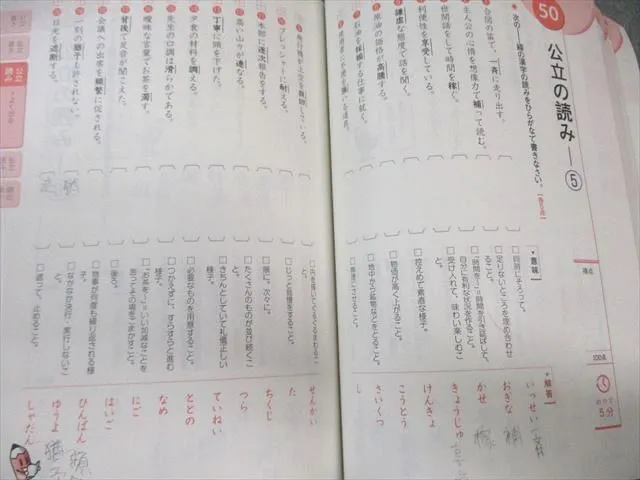 50
公立の読み―⑤
得点
100点
めやす
5分
次の――線の漢字の読みをひらがなで書きなさい。
合図の笛で、一斉に走り出す。
主人公の心情を想像力で補って読む。
世間話をして時間を稼ぐ。
利便性を享受している。
謙虚な態度で話を聞く。
原油の価格が高騰する。
石油を採掘する仕事に就く。
プレッシャーに耐える。
本部に逐次報告をする。
高い山々が連なる。
丁寧に頭を下げた。
夕食の材料を調える。
先生の口調は滑らかである。
曖昧な言葉でお茶を濁す。
背後で足音が聞こえた。
会議への出席を頻繁に促される。
一刻の猶予も許されない。
日光を遮断する。
意味
□足りないところを埋め合わせること。
□「時間を」時間を引き延ばして、自分に有利な状況を作ること。
□受け入れて、味わい楽しむこと。
□控えめで素直な様子。
□価格が高く上がること。
□地中から鉱物などをとること。
□じっと我慢をすること。
□順に。次々に。
□たくさんのものが並び続くこと。
□きちんとしていて礼儀正しい様子。
□必要なものを用意すること。
□つかえずに、すらすらと進む様子。
□「お茶を」いい加減なことを言ってその場をごまかすこと。
□後ろ。
□物事が何度も繰り返される様子。
□なかなか決行・実行しないこと。
□遮って、止めること。
解答
いっせい
おぎな
かせ
きょうじゅ
けんきょ
こうとう
さいくつ
し
せんかい
た
ちくじ
つら
ていねい
ととの
なめ
にご
はいご
ひんぱん
ゆうよ
しゃだん